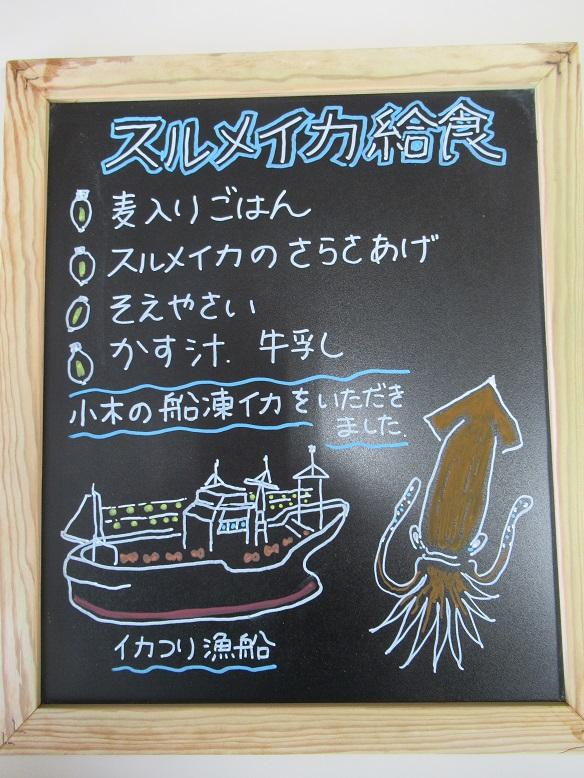 スルメイカ給食
麦入りごはん
スルメイカのさらさあげ
そえやさい
かす汁. 牛乳
小木の船凍イカをいただき
ました.
イカつり漁船